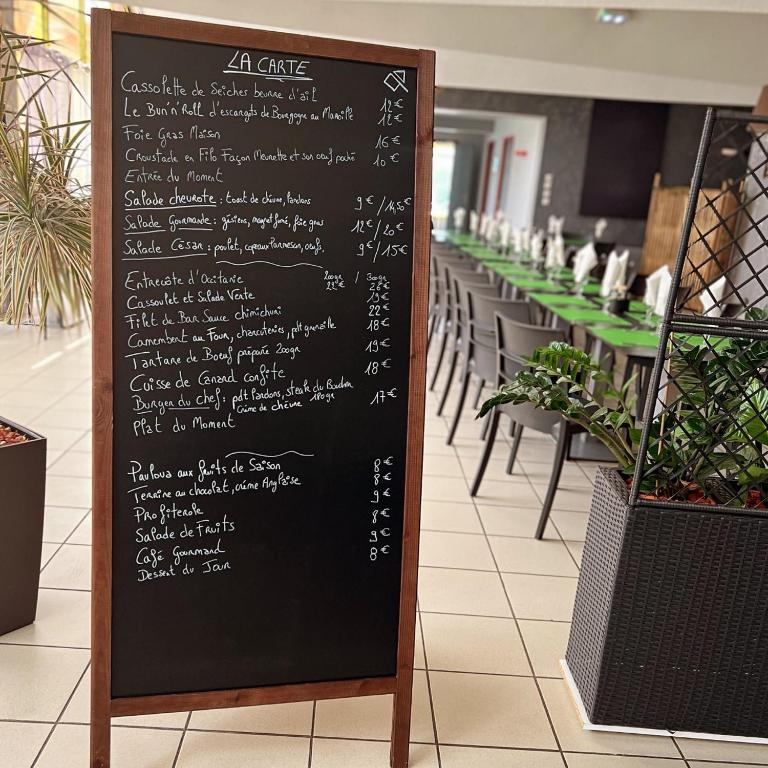 LA CARTE
Cassolette de Seiches beurre d'ail 12€
Le Bun'n'Roll d'escargots de Bourgogne au Maroille 12€
Foie Gras Maison 16€
Croustade en Filo Façon Meurette et son oeuf poché 10€
Entrée du Moment
Salade cheurote : toast de chèvre, lardons 9€/14,50€
Salade Gourmande : gésiers, magret fumé, foie gras 12€/20€
Salade César : poulet, copeaux Parmesan, oeufs. 9€/15€
Entrecôte d'Occitanie 200gr 23€ / 300gr 28€
Cassoulet et Salade Verte 19€
Filet de Bar Sauce chimichuri 22€
Camembert au Four, charcuteries, pdt grenaille 18€
Tartare de Boeuf préparée 200gr 19€
Cuisse de Canard confite 18€
Burger du chef : pdt lardons, steak du Boucher 180gr 17€
crème de chèvre
Plat du Moment
Pavlova aux fruits de Saison 8€
Terrine au chocolat, crème Anglaise 8€
Profiterole 9€
Salade de Fruits 8€
Café Gourmand 9€
Dessert du Jour 8€